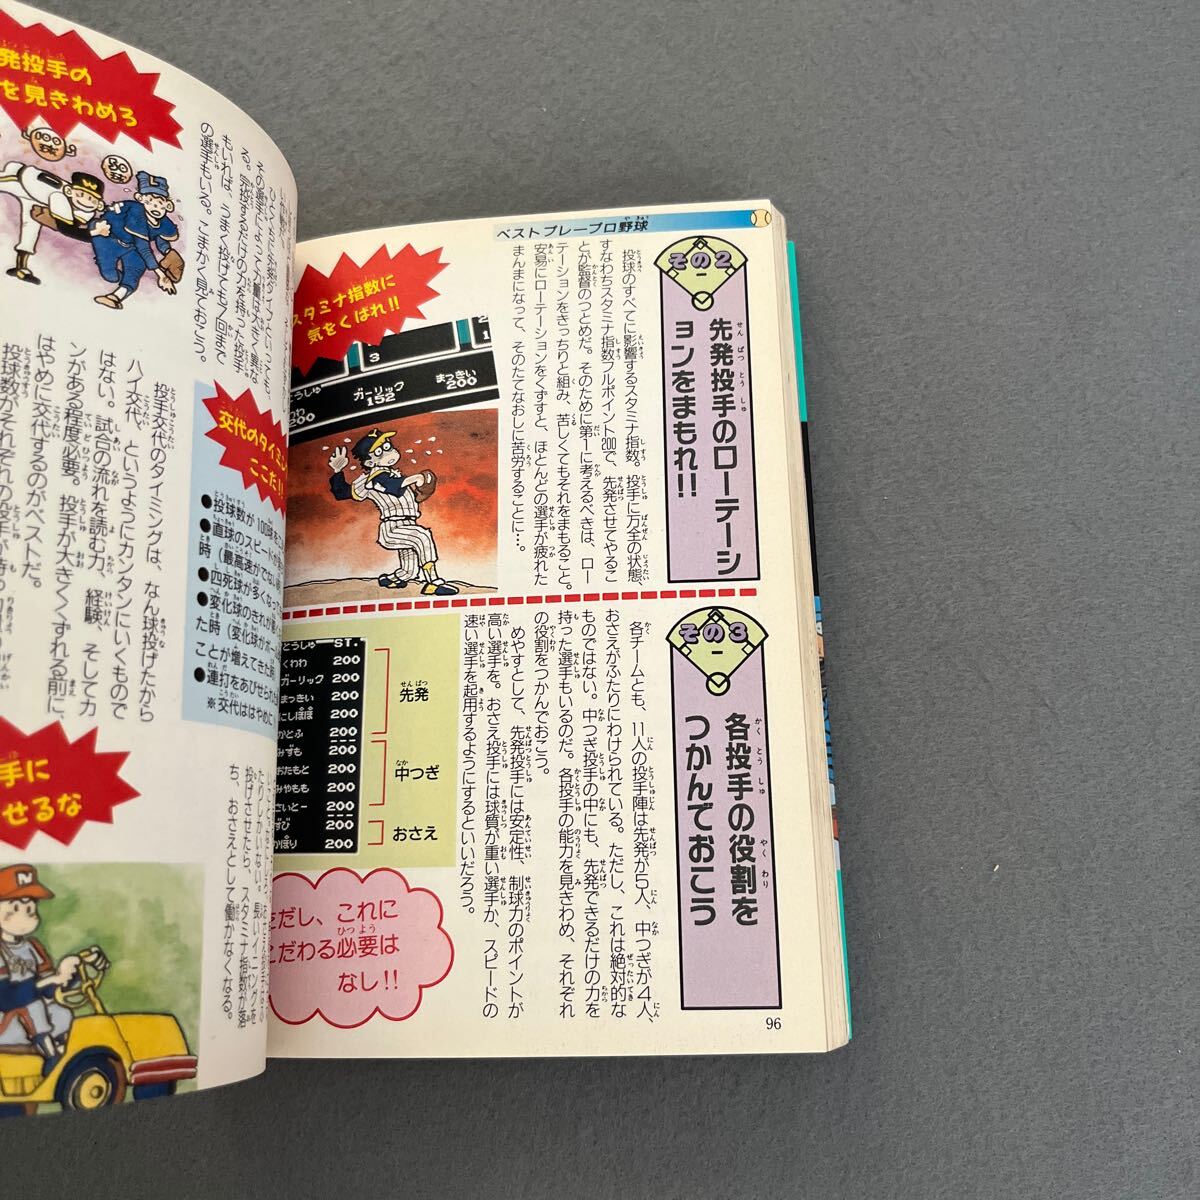 ベストプレープロ野球
その2
先発投手のローテーシ
ョンをまもれ!!
投球のすべてに影響するスタミナ指数。投手に万全の状態、
すなわちスタミナ指数フルポイント200で、先発させてやるこ
とが監督のつとめだ。そのために第1に考えるべきは、ロー
テーションをきっちりと組み、苦しくてもそれをまもること。
安易にローテーションをくずすと、ほとんどの選手が疲れた
まんまになって、そのたてなおしに苦労することに…。
スタミナ指数に
気をくばれ!!
3
ガーリック
152
まっきい
200
その3
各投手の役割を
つかんでおこう
各チームとも、11人の投手陣は先発が5人、中つぎが4人、
おさえがふたりにわけられている。ただし、これは絶対的な
ものではない。中つぎ投手の中にも、先発できるだけの力を
持った選手もいるのだ。各投手の能力を見きわめ、それぞれ
の役割をつかんでおこう。
めやすとして、先発投手には安定性、制球力のポイントが
高い選手を。おさえ投手には球質が重い選手か、スピードの
速い選手を起用するようにするといいだろう。
とうしゅ ST.
くわわ 200
ガーリック 200
まっきい 200
にしぼぼ 200
かとふ 200
みずも 200
おたもと 200
みやもも 200
さいとー 200
すび 200
かぼり 200
先発
中つぎ
おさえ
ただし、これに
こだわる必要は
なし!!
96
発投手の
を見きわめろ
100球
80球
もいれば、うまく投げても7回まで
の選手もいる。こまかく見ておこう。
投手交代のタイミングは、なん球投げたから
ハイ交代、というようにカンタンにいくもので
はない。試合の流れを読む力、経験、そしてカ
ンがある程度必要。投手が大きくくずれる前に、
はやめに交代するのがベストだ。
交代のタイミン
ここだ!!
●投球数が100球を
●直球のスピードが
時(最高速がでない
●四死球が多くなった
●変化球のきれが悪く
た時(変化球がボー
ことが増えてきた時
●連打をあびせられた
※交代ははやめに
手に
せるな
たりしかいない。長いイニングを
投げさせたら、スタミナ指数が落
ち、おさえとして働かなくなる。